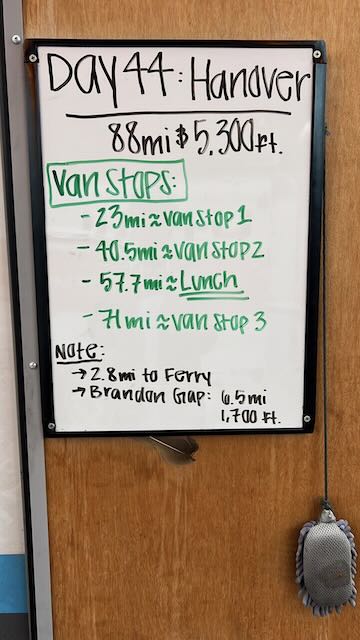 Day 44: Hanover
88mi & 5,300ft.
Van Stops:
- 23mi ≈ van stop 1
- 40.5mi ≈ van stop 2
- 57.7mi ≈ Lunch
- 71mi ≈ van stop 3
Note:
→ 2.8mi to Ferry
→ Brandon Gap: 6.5mi
1,700 ft.